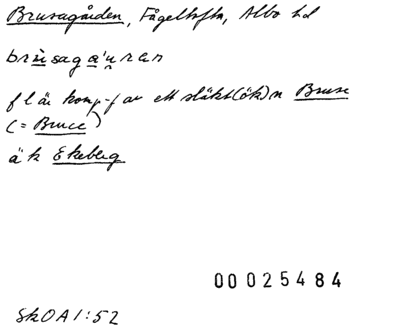 Brusagården, Fågeltofta, Albo hd
brùsaga'uran
f l är komp-f av ett släkt(ök)n Bruse
(= Bruce)
äk Ekeberg
00025484
SkOA1:52